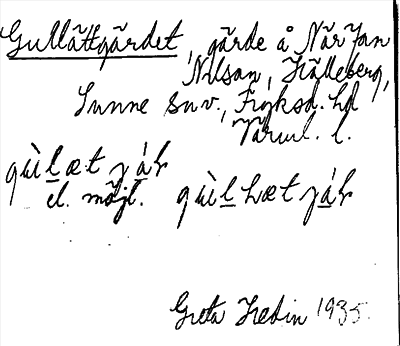 Gullättgärdet, gärde å När Jan
Nilsson, Hälleberg,
Sunne sn v., Fryksd. hd
Värml. l.
el. möjl.
Greta Hedin 1935.